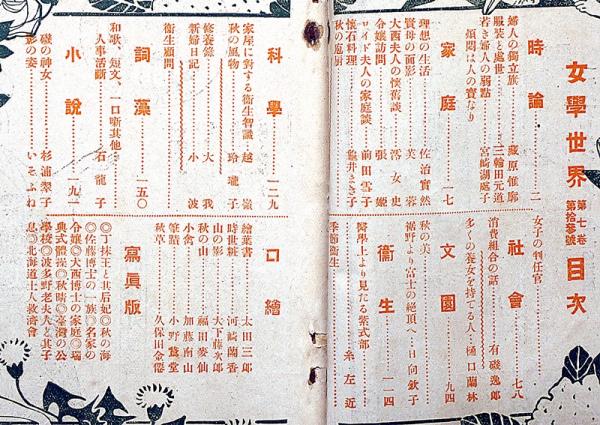 女學世界 第七卷 第拾參號 目次
時論……二
婦人の獨立族……藏原惟郭
服裝と處世……三輪田元道
若き婦人の弱點……宮崎湖處子
煩悶は人の寶なり
家庭……一七
理想の生活……佐治實然
賢母の面影……芙蓉
大西夫人の懷舊談……澪女史
令孃訪問……張姬
ロイド夫人の家庭談……前田雪子
懷石料理……龜井まき子
秋の庖厨
女子の判任官
社會……七八
消費組合の話……有磯逸郎
多くの養女を持てる人……樋口蘭林
文園……九四
秋の美
裾野より富士の絶頂へ……日向欽子
衞生……一一四
醫學上より見たる紫式部……糸左近
季節衞生
科學……一二九
家屋に對する衞生智識……越嶺
秋の風物……玲瓏子
修養錄……大我
新婦日記……小波
衞生顧問
詞藻……一五〇
和歌、短文、一口噺其他
人事活斷……石龍子
小說……一九一
磯の神女……杉浦翠子
影の姿……いそふね
口繪
繪葉書……太田三郎
時世粧……河崎蘭香
山の影……大下藤次郎
秋の山……福田麥仙
小禽……加藤南山
筆蹟……小野鵞堂
秋草……久保田金僊
寫眞版
◎丁抹王と其后妃◎秋の海
◎佐藤博士の一族◎名家の
令孃◎大西博士の家庭◎瑞
典式體操◎秋晴◎臺灣の公
學校◎波多野老夫人と其子
息◎北海道土人救濟會